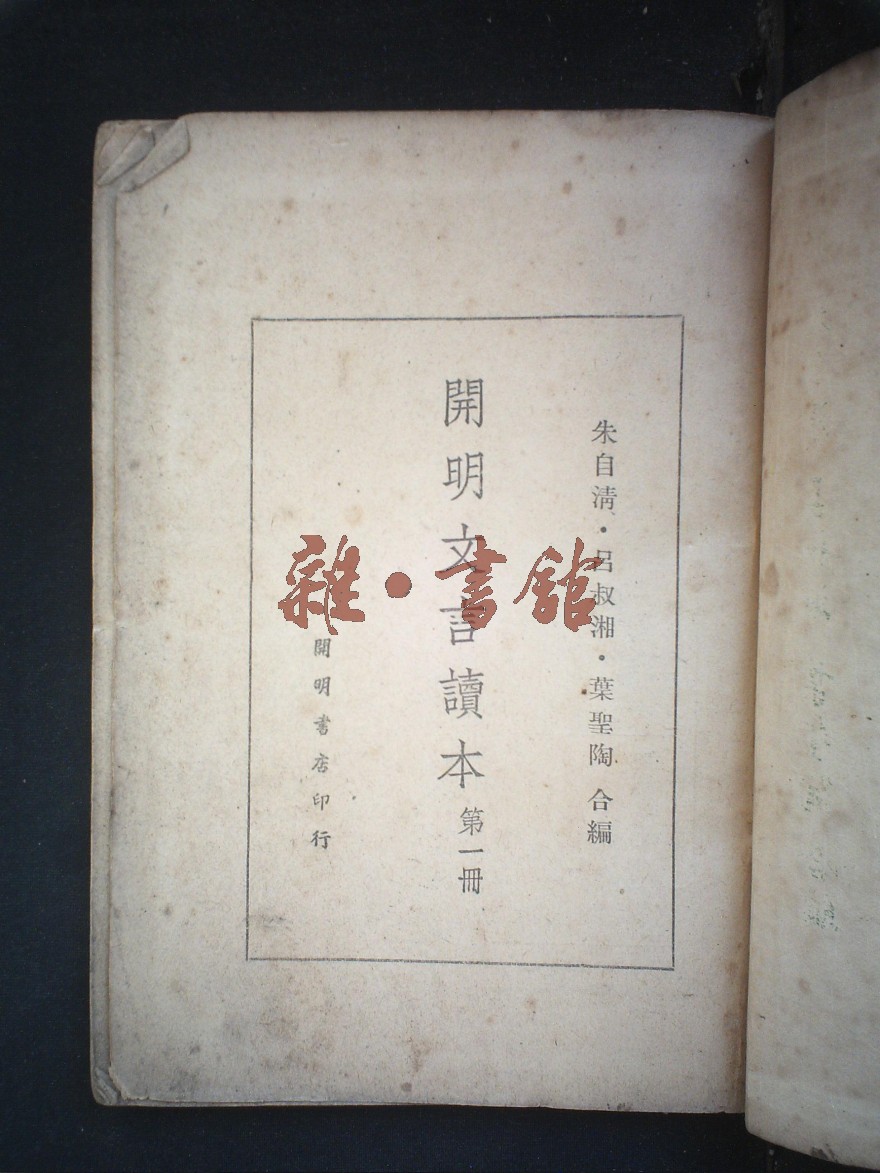 朱自清・呂叔湘・葉聖陶 合編
開明文言讀本 第一冊
開明書店印行
雜・書館